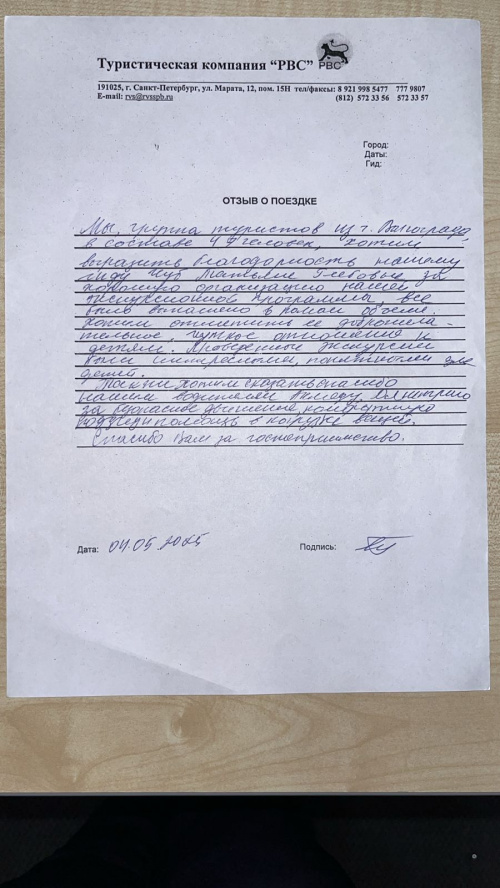 Туристическая компания “РВС”
РВС
191025, г. Санкт-Петербург, ул. Марата, 12, пом. 15Н тел/факсы: 8 921 998 5477 777 9807
E-mail: rvs@rvsspb.ru (812) 572 33 56 572 33 57
Город:
Даты:
Гид:
ОТЗЫВ О ПОЕЗДКЕ
Мы, группа туристов из г. Винограда,
в составе человек, хотим
выразить благодарность нашему
гиду Татьяне Глебовне за
хорошую организацию нашей
экскурсионной программы, все
было выполнено в полном объеме.
Хотим отметить ее доброжела-
тельное, чуткое отношение к
детям. Проведенные экскурсии
были интересными, понятными для
детей.
Также хотим сказать спасибо
нашим водителям Ахмеду,
за движение,
помощь в погрузке вещей.
Спасибо Вам за гостеприимство.
Дата: 04.05.2025 Подпись: